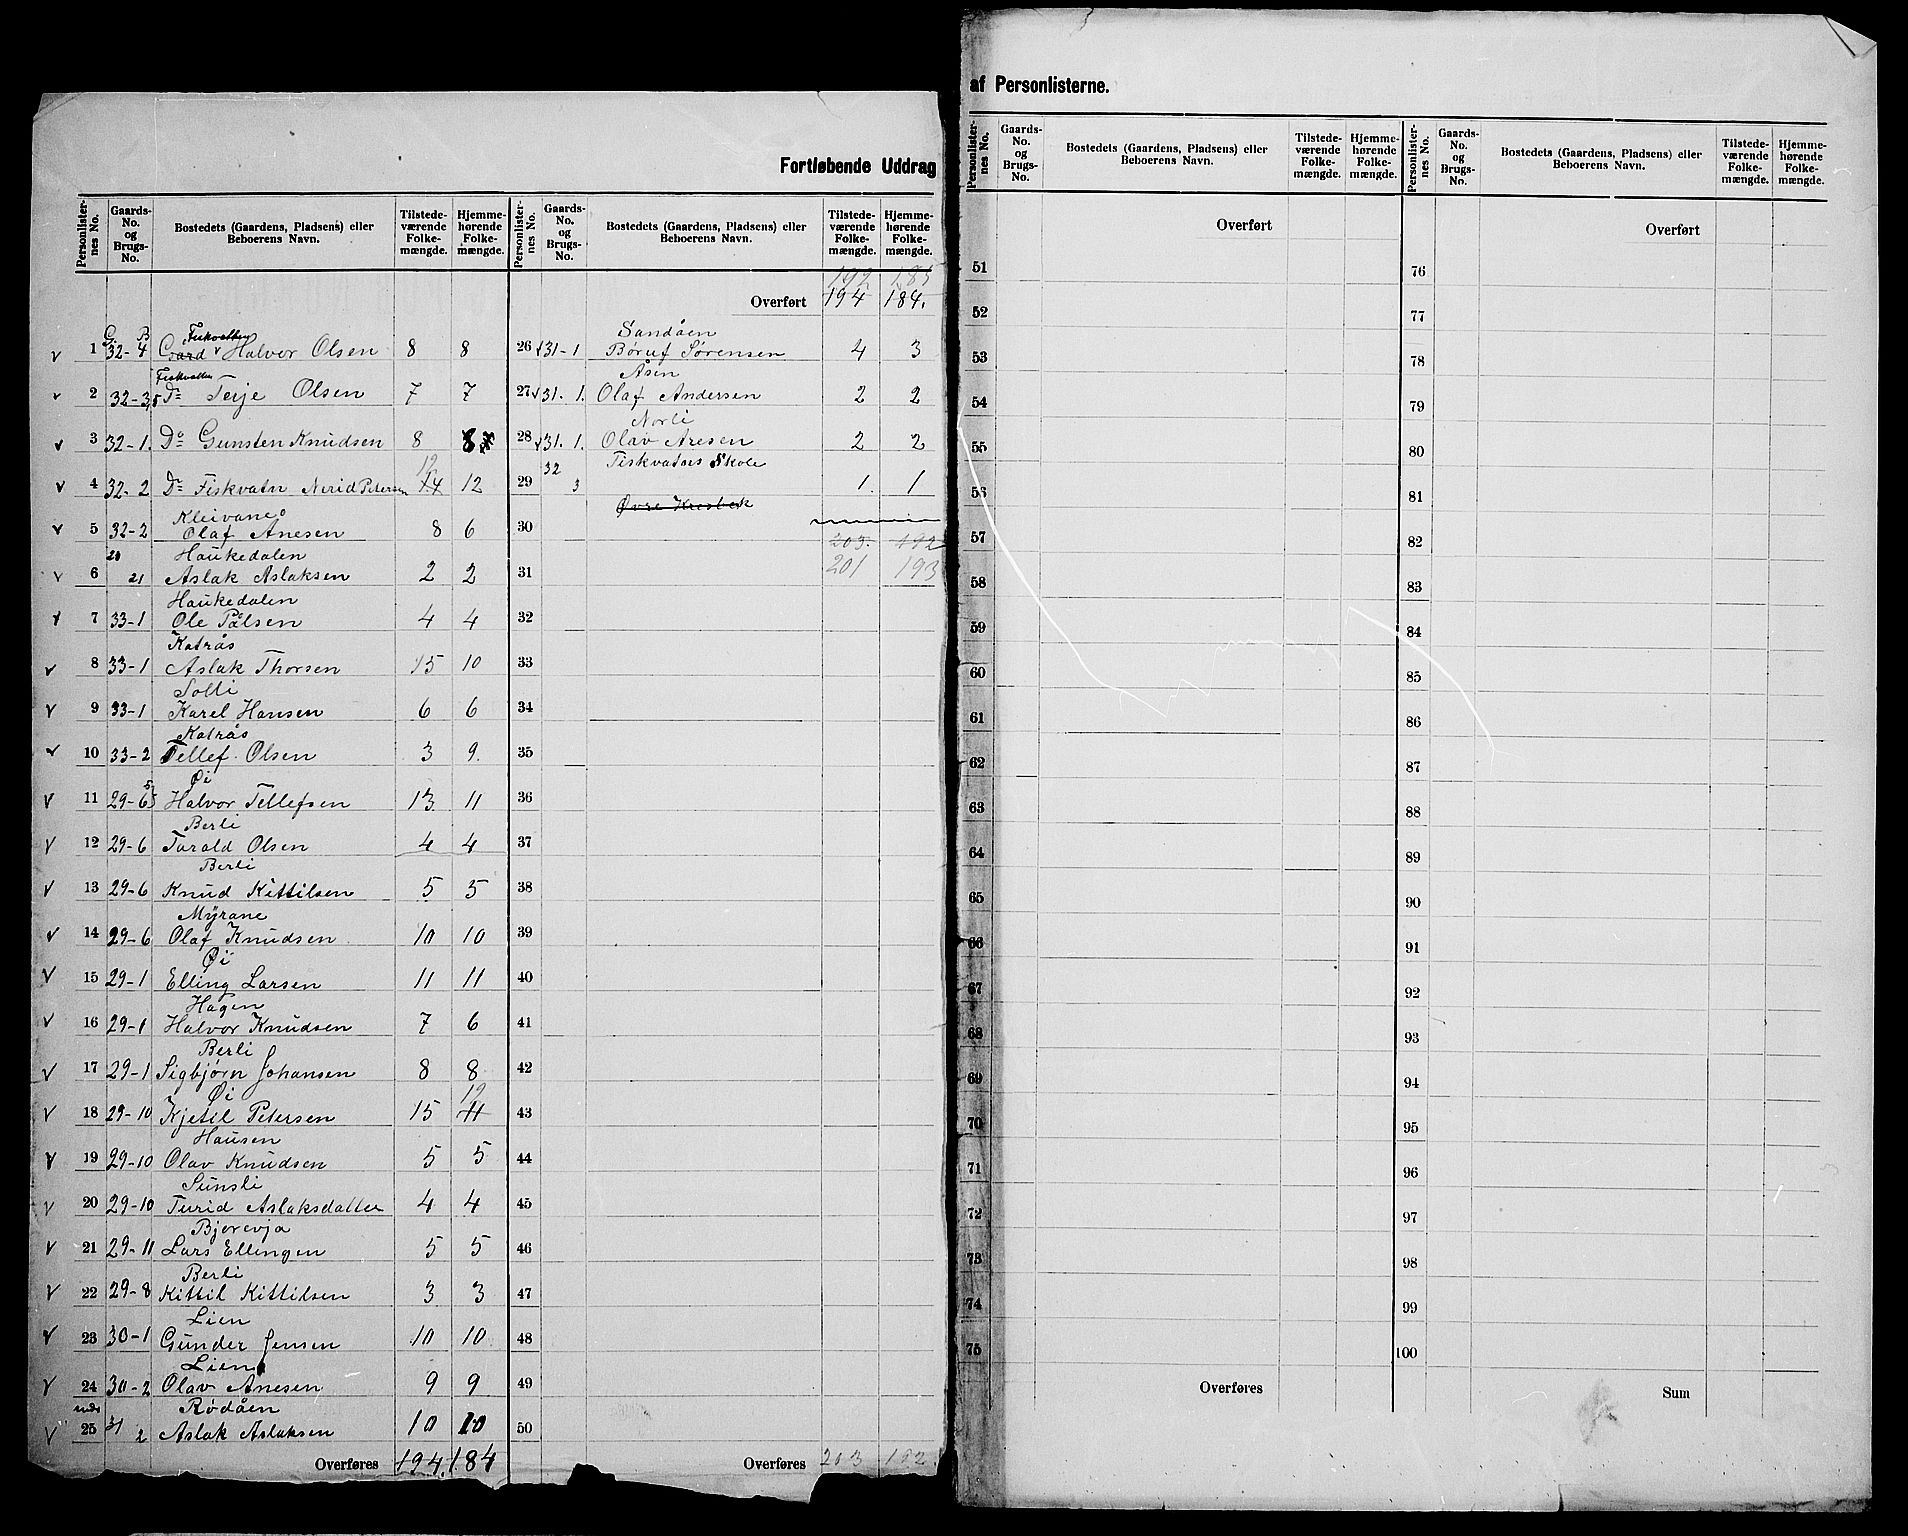 Fortløbende Uddrag
Personlister-nes No. | Gaards-No. og Brugs-No. | Bostedets (Gaardens, Pladsens) eller Beboerens Navn. | Tilstede-værende Folke-mængde. | Hjemme-hørende Folke-mængde.
G. B
Fiskvatten
1 32-4 Gaard Halvor Olsen 8 8
Fiskvatten
2 32-3,5 Do Terje Olsen 7 7
3 32-1. Do Gunsten Knudsen 8 8
12
4 32-2 Do Fiskvatn Nerid Petersen 14 12
Kleivane
5 32-2 Olaf Anesen 8 6
28 Haukedalen
6 21 Aslak Aslaksen 2 2
Haukedalen
7 33-1 Ole Pålsen 4 4
Katrås
8 33-1 Aslak Thorsen 15 10
Solli
9 33-1 Karel Hansen 6 6
Katrås
10 33-2 Tellef Olsen 3 9.
Øi
11 29-6 5 Halvor Tellefsen 13 11
Berli
12 29-6 Torald Olsen 4 4
Berli
13 29-6 Knud Kittilsen 5 5
Myrane
14 29-6 Olaf Knudsen 10 10
Øi
15 29-1 Elling Larsen 11 11
Hagen
16 29-1 Halvor Knudsen 7 6
Berli
17 29-1 Sigbjørn Johansen 8 8
Øi 12
18 29-10 Kjetil Petersen 15 11
Hausen
19 29-10 Olav Knudsen 5 5
Sunsli
20 29-10 Turid Aslaksdatter 4 4
Bjorevja
21 29-11 Lars Ellingen 5 5
Berli
22 29-8 Kittil Kittilsen 3 3
Lien
23 30-1 Gunder Jensen 10 10
Lien
24 30-2 Olav Anesen 9 9
Rødåen
25 31 2 Aslak Aslaksen 10 10
Overføres 194. 184
Personlister-nes No. | Gaards-No. og Brugs-No. | Bostedets (Gaardens, Pladsens) eller Beboerens Navn. | Tilstede-værende Folke-mængde. | Hjemme-hørende Folke-mængde.
192 185
Overført 194 184.
Sandåen
26 31-1 Børuf Sørensen 4 3
Åsen
27 31.1. Olaf Andersen 2 2
Norli
28 31.1. Olav Aresen 2 2
32 Fiskvatns Skole
29 3 1. 1
Øvre Krosbek
30
203. 192
31 201 193
32
33
34
35
36
37
38
39
40
41
42
43
44
45
46
47
48
49
50
Overføres 203 192.
af Personlisterne.
Personlister-nes No. | Gaards-No. og Brugs-No. | Bostedets (Gaardens, Pladsens) eller Beboerens Navn. | Tilstede-værende Folke-mængde. | Hjemme-hørende Folke-mængde.
Overført
51
52
53
54
55
56
57
58
59
60
61
62
63
64
65
66
67
68
69
70
71
72
73
74
75
Overføres
Personlister-nes No. | Gaards-No. og Brugs-No. | Bostedets (Gaardens, Pladsens) eller Beboerens Navn. | Tilstede-værende Folke-mængde. | Hjemme-hørende Folke-mængde.
Overført
76
77
78
79
80
81
82
83
84
85
86
87
88
89
90
91
92
93
94
95
96
97
98
99
100
Sum